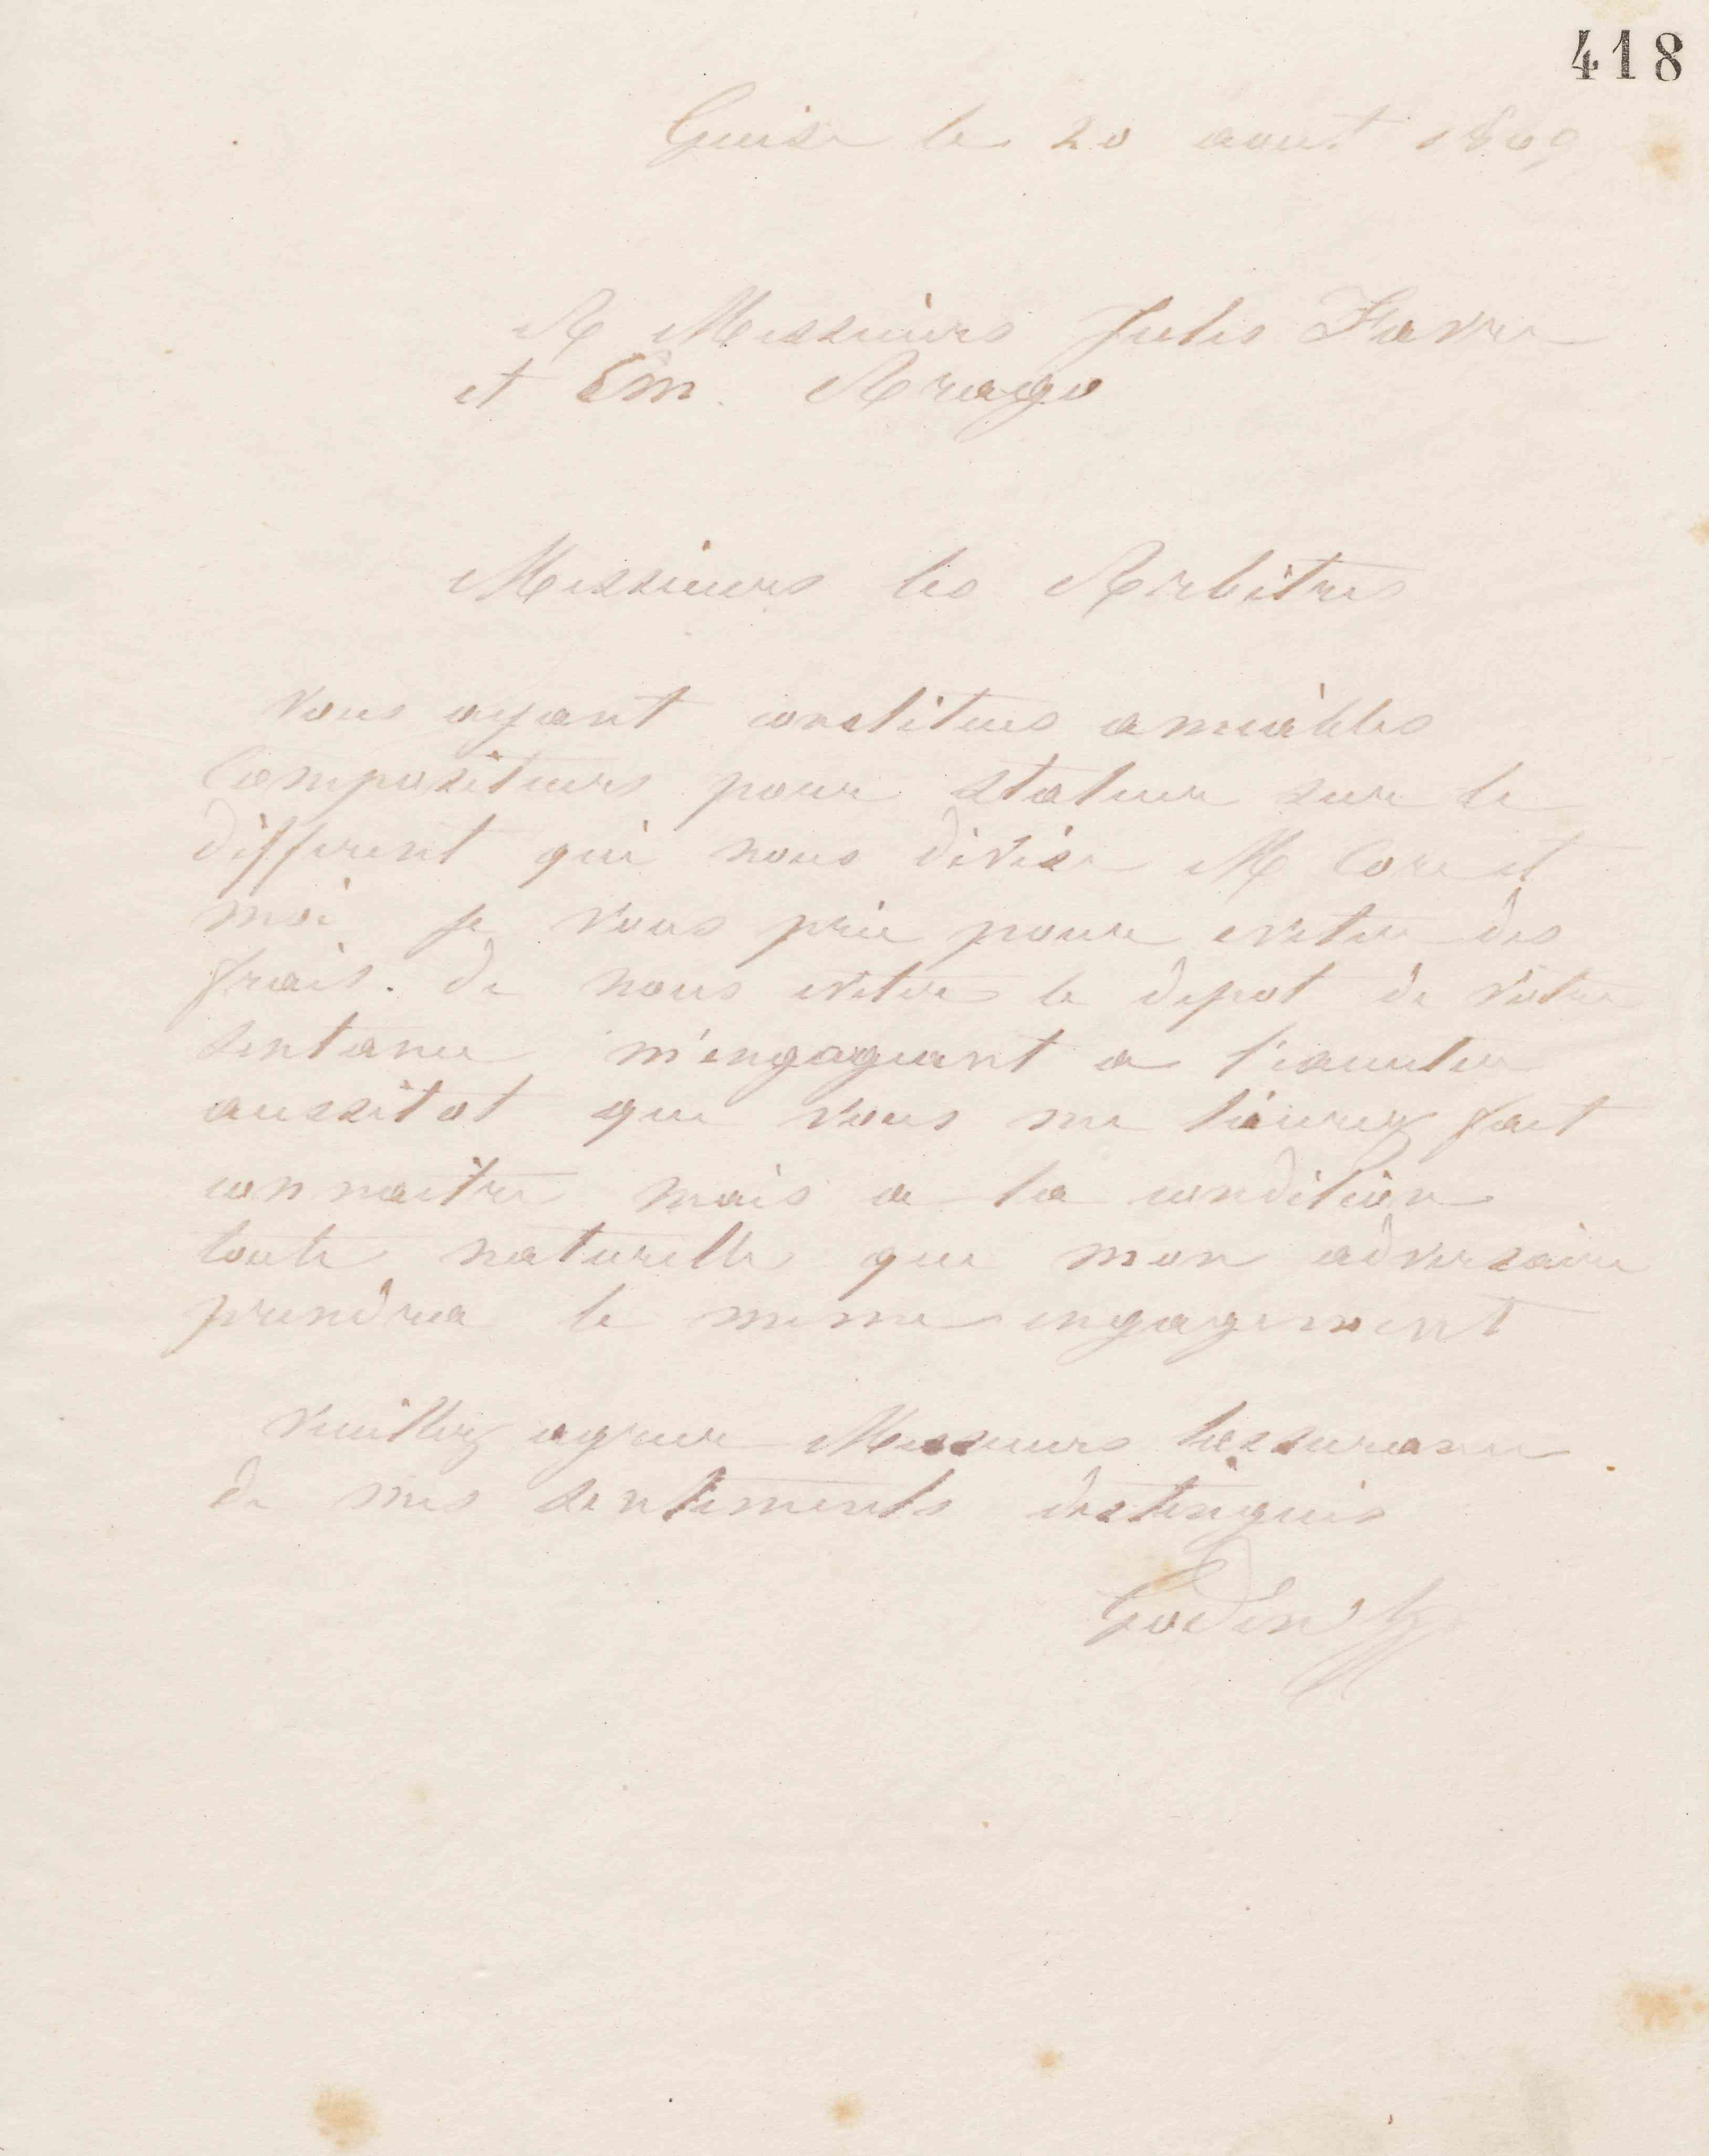 418
Guise le 20 aout 1869
A Messieurs Jules Favre
et Em. Arago
Messieurs les Arbitres
Vous ayant constitués amiables
Compositeurs pour statuer sur le
different qui nous divise M Core et
moi je vous prie pour eviter des
frais. de nous eviter le depot de votre
sentance m'engageant a l'executer
aussitot que vous me l'aurez fait
connaitre mais a la condition
toute naturelle que mon adversaire
prendrea le meme engagement
Veuillez agreer Messieurs l'assurance
de mes sentiments distingués
Godin